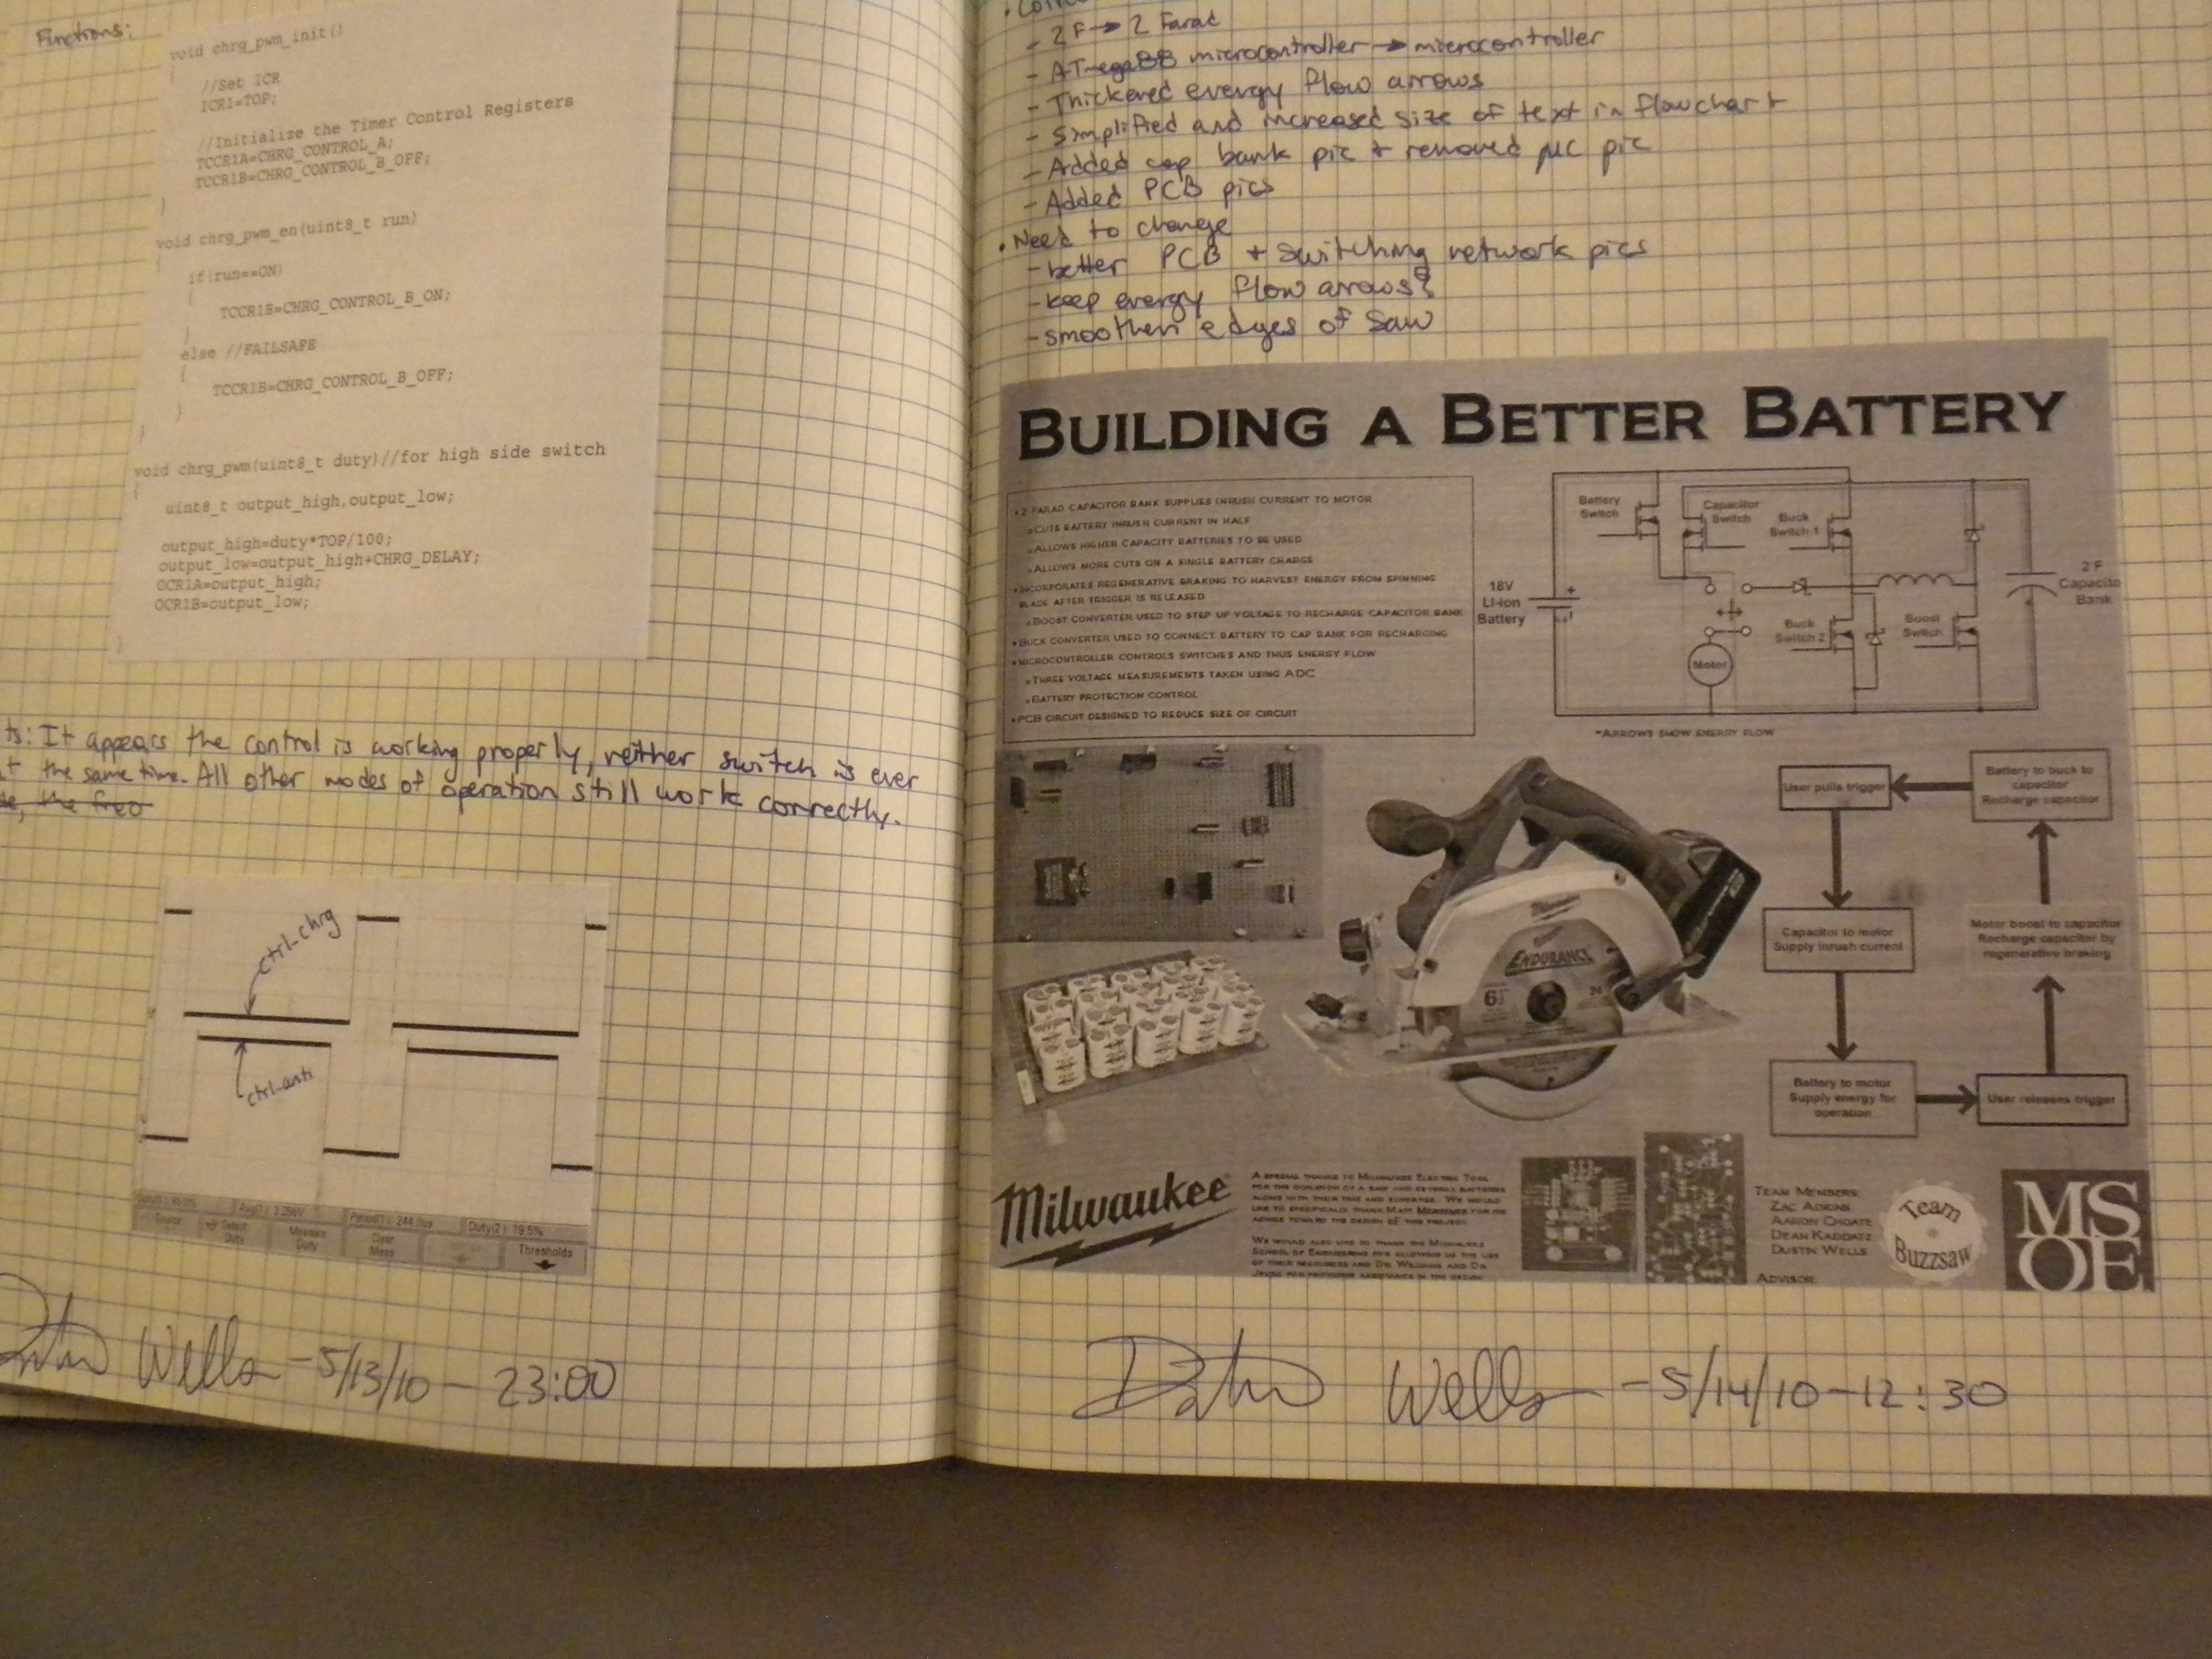 Functions:
void chrg_pwm_init()
{
//Set ICR
ICR1=TOP;
//Initialize the Timer Control Registers
TCCR1A=CHRG_CONTROL_A;
TCCR1B=CHRG_CONTROL_B_OFF;
}
void chrg_pwm_en(uint8_t run)
{
if(run==ON)
{
TCCR1B=CHRG_CONTROL_B_ON;
}
else //FAILSAFE
{
TCCR1B=CHRG_CONTROL_B_OFF;
}
}
void chrg_pwm(uint8_t duty)//for high side switch
{
uint8_t output_high,output_low;
output_high=duty*TOP/100;
output_low=output_high+CHRG_DELAY;
OCR1A=output_high;
OCR1B=output_low;
}
ts: It appears the control is working properly, neither switch is ever
at the same time. All other modes of operation still work correctly.
the freq
ctrl-chrg
ctrl-anti
Period(1): 244.0us Duty(2): 19.5%
Source Select: Duty Measure Duty Clear Meas Thresholds
Wells - 5/13/10 - 23:00
- 2 F → 2 Farad
- ATmega88 microcontroller → microcontroller
- Thickened energy flow arrows
- Simplified and increased size of text in flowchart
- Added cap bank pic + removed µC pic
- Added PCB pics
• Need to change
- better PCB + switching network pics
- keep energy flow arrows?
- smoothen edges of saw
BUILDING A BETTER BATTERY
•2 FARAD CAPACITOR BANK SUPPLIES INRUSH CURRENT TO MOTOR
CUTS BATTERY INRUSH CURRENT IN HALF
ALLOWS HIGHER CAPACITY BATTERIES TO BE USED
ALLOWS MORE CUTS ON A SINGLE BATTERY CHARGE
•INCORPORATES REGENERATIVE BRAKING TO HARVEST ENERGY FROM SPINNING
BLADE AFTER TRIGGER IS RELEASED
BOOST CONVERTER USED TO STEP UP VOLTAGE TO RECHARGE CAPACITOR BANK
•BUCK CONVERTER USED TO CONNECT BATTERY TO CAP BANK FOR RECHARGING
•MICROCONTROLLER CONTROLS SWITCHES AND THUS ENERGY FLOW
THREE VOLTAGE MEASUREMENTS TAKEN USING ADC
BATTERY PROTECTION CONTROL
•PCB CIRCUIT DESIGNED TO REDUCE SIZE OF CIRCUIT
Battery
Switch
Capacitor
Switch
Buck
Switch 1
18V
Li-Ion
Battery
2 F
Capacito
Bank
Buck
Switch 2
Boost
Switch
Motor
*ARROWS SHOW ENERGY FLOW
User pulls trigger
Battery to buck to
capacitor
Recharge capacitor
Capacitor to motor
Supply inrush current
Motor boost to capacitor
Recharge capacitor by
regenerative braking
Battery to motor
Supply energy for
operation
User releases trigger
ENDURANCE
6½ 24
Milwaukee
A SPECIAL THANKS TO MILWAUKEE ELECTRIC TOOL
FOR THE DONATION OF A SAW AND SEVERAL BATTERIES
ALONG WITH THEIR TIME AND EXPERTISE. WE WOULD
LIKE TO SPECIFICALLY THANK MATT FOR HIS
ADVICE TOWARD THE DESIGN OF THIS PROJECT.
WE WOULD ALSO LIKE TO THANK THE MILWAUKEE
SCHOOL OF ENGINEERING FOR ALLOWING US THE USE
OF THEIR RESOURCES AND DR. WILLIAMS AND DR.
TEAM MEMBERS:
ZAC ADKINS
AARON CHOATE
DEAN KADDATZ
DUSTIN WELLS
ADVISOR:
Team
Buzzsaw
MS
OE
Wells - 5/14/10 - 12:30